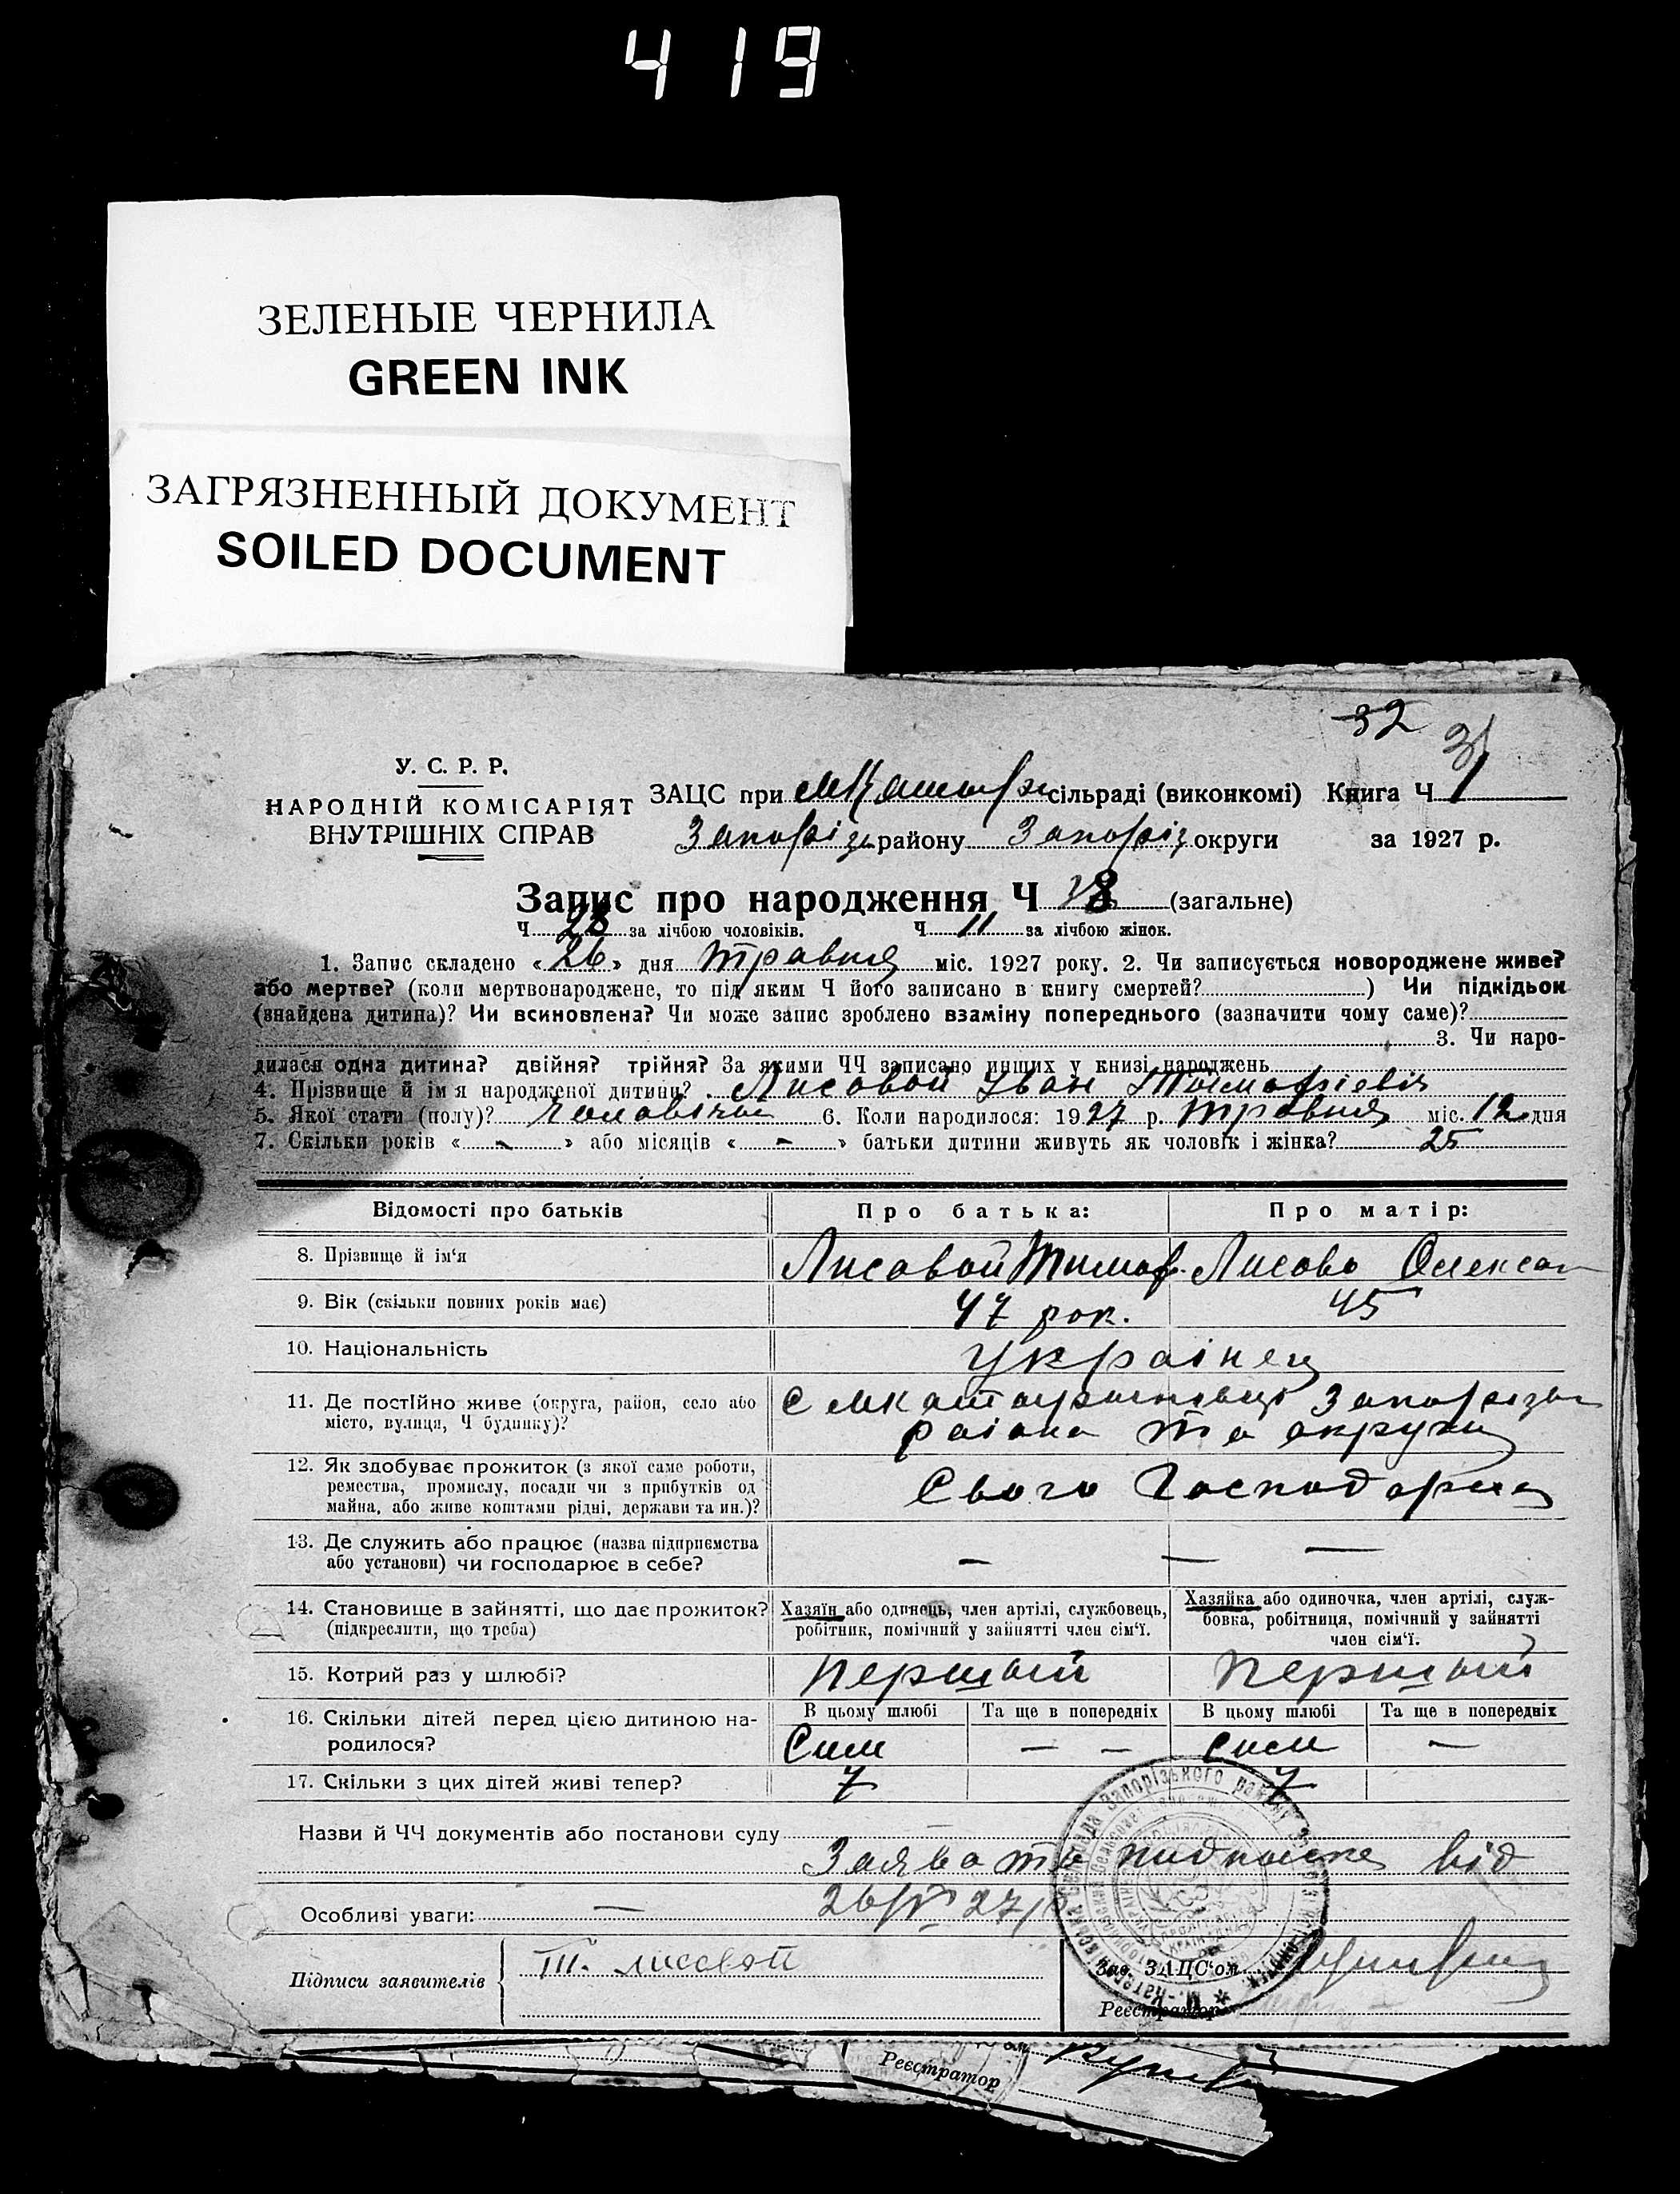 419
ЗЕЛЕНЫЕ ЧЕРНИЛА
GREEN INK
ЗАГРЯЗНЕННЫЙ ДОКУМЕНТ
SOILED DOCUMENT
32
31
У. С. Р. Р.
НАРОДНІЙ КОМІСАРІЯТ
ВНУТРІШНІХ СПРАВ
ЗАЦС при сільраді (виконкомі) Книга Ч. 1
Запоріз району Запоріз округи за 1927 р.
Запис про народження Ч. (загальне)
Ч. 28 за лічбою чоловіків. Ч. 11 за лічбою жінок.
1. Запис складено «26» дня травня міс. 1927 року. 2. Чи записується новороджене живе?
або мертве? (коли мертвонароджене, то під яким Ч його записано в книгу смертей? ) Чи підкідьок
(знайдена дитина)? Чи всиновлена? Чи може запис зроблено взаміну попереднього (зазначити чому саме)?
3. Чи наро-
дилася одна дитина? двійня? трійня? За якими ЧЧ записано инших у книзі народжень
4. Прізвище й ім'я народженої дитини? Лисовой Іван Тимофієвіч
5. Якої стати (полу)? 6. Коли народилося: 1927 р. травня міс. 12 дня
7. Скільки років « - » або місяців « - » батьки дитини живуть як чоловік і жінка? 25
Відомості про батьків Про батька: Про матір:
8. Прізвище й ім'я Лисовой Тимоф. Лисова Олексан
9. Вік (скільки повних років має) 47 рок. 45
10. Національність Українец
11. Де постійно живе (округа, район, село або
місто, вулиця, Ч будинку)?
с Запорізьк
раіона та округи
12. Як здобуває прожиток (з якої саме роботи,
ремества, промислу, посади чи з прибутків од
майна, або живе коштами рідні, держави та ин.)?
Свого Господарна
13. Де служить або працює (назва підприємства
або установи) чи господарює в себе?
— — —
14. Становище в зайнятті, що дає прожиток?
(підкреслити, що треба)
Хазяїн або одинець, член артілі, службовець,
робітник, помічний у зайнятті член сім'ї.
Хазяйка або одиночка, член артілі, служ-
бовка, робітниця, помічний у зайнятті
член сім'ї.
15. Котрий раз у шлюбі? першый першый
16. Скільки дітей перед цією дитиною на-
родилося?
В цьому шлюбі Та ще в попередніх В цьому шлюбі Та ще в попередніх
Сим — — Сим —
17. Скільки з цих дітей живі тепер? 7 7
Назви й ЧЧ документів або постанови суду
Заява та подписка від
Особливі уваги: — 26/V 27 р
Підписи заявителів Т. лисовой
Зав. ЗАЦС'ом
Реєстратор
Реєстратор